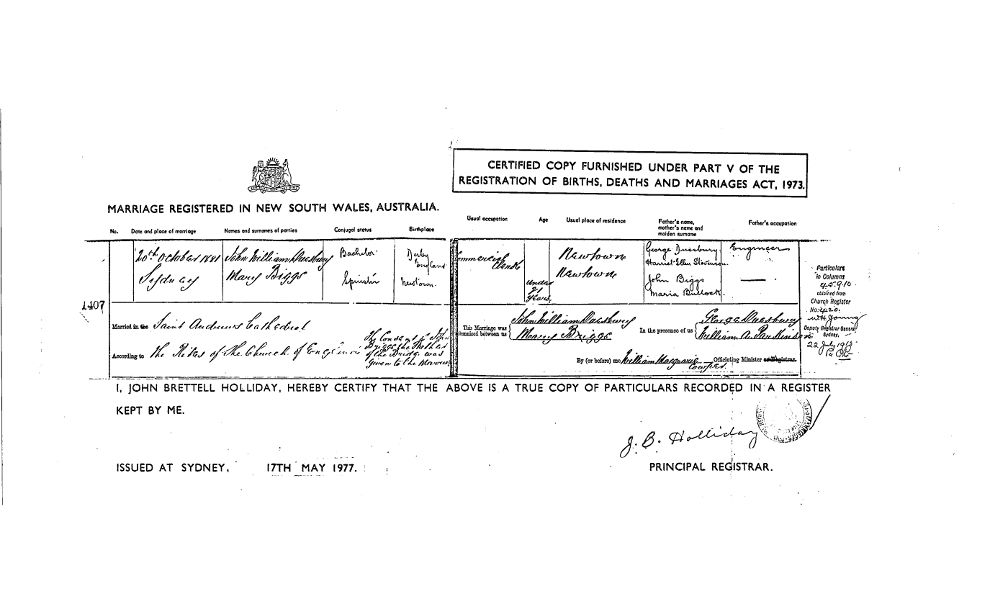 CERTIFIED COPY FURNISHED UNDER PART V OF THE
REGISTRATION OF BIRTHS, DEATHS AND MARRIAGES ACT, 1973.
MARRIAGE REGISTERED IN NEW SOUTH WALES, AUSTRALIA.
No. Date and place of marriage Names and surnames of parties Conjugal status Birthplace Usual occupation Age Usual place of residence Father's name, mother's name and maiden surname Father's occupation
20th October 1881 John William Bachelor Derby England Commercial Newtown George Engineer
Harriet Ellen
Sydney Mary Briggs Spinster under 21 years Newtown John Biggs —
Maria Bullock
1407
Particulars in Columns
obtained from
Church Register
Deputy Registrar General
Sydney.
Married in the Saint Andrews Cathedral
According to the Rites of The Church of
of the Bride was
given to the
This Marriage was solemnized between us John William
Mary Briggs
In the presence of us George
William A.
By (or before) me William Officiating Minister or Registrar.
I, JOHN BRETTELL HOLLIDAY, HEREBY CERTIFY THAT THE ABOVE IS A TRUE COPY OF PARTICULARS RECORDED IN A REGISTER
KEPT BY ME.
J. B. Holliday
ISSUED AT SYDNEY, 17TH MAY 1977. PRINCIPAL REGISTRAR.